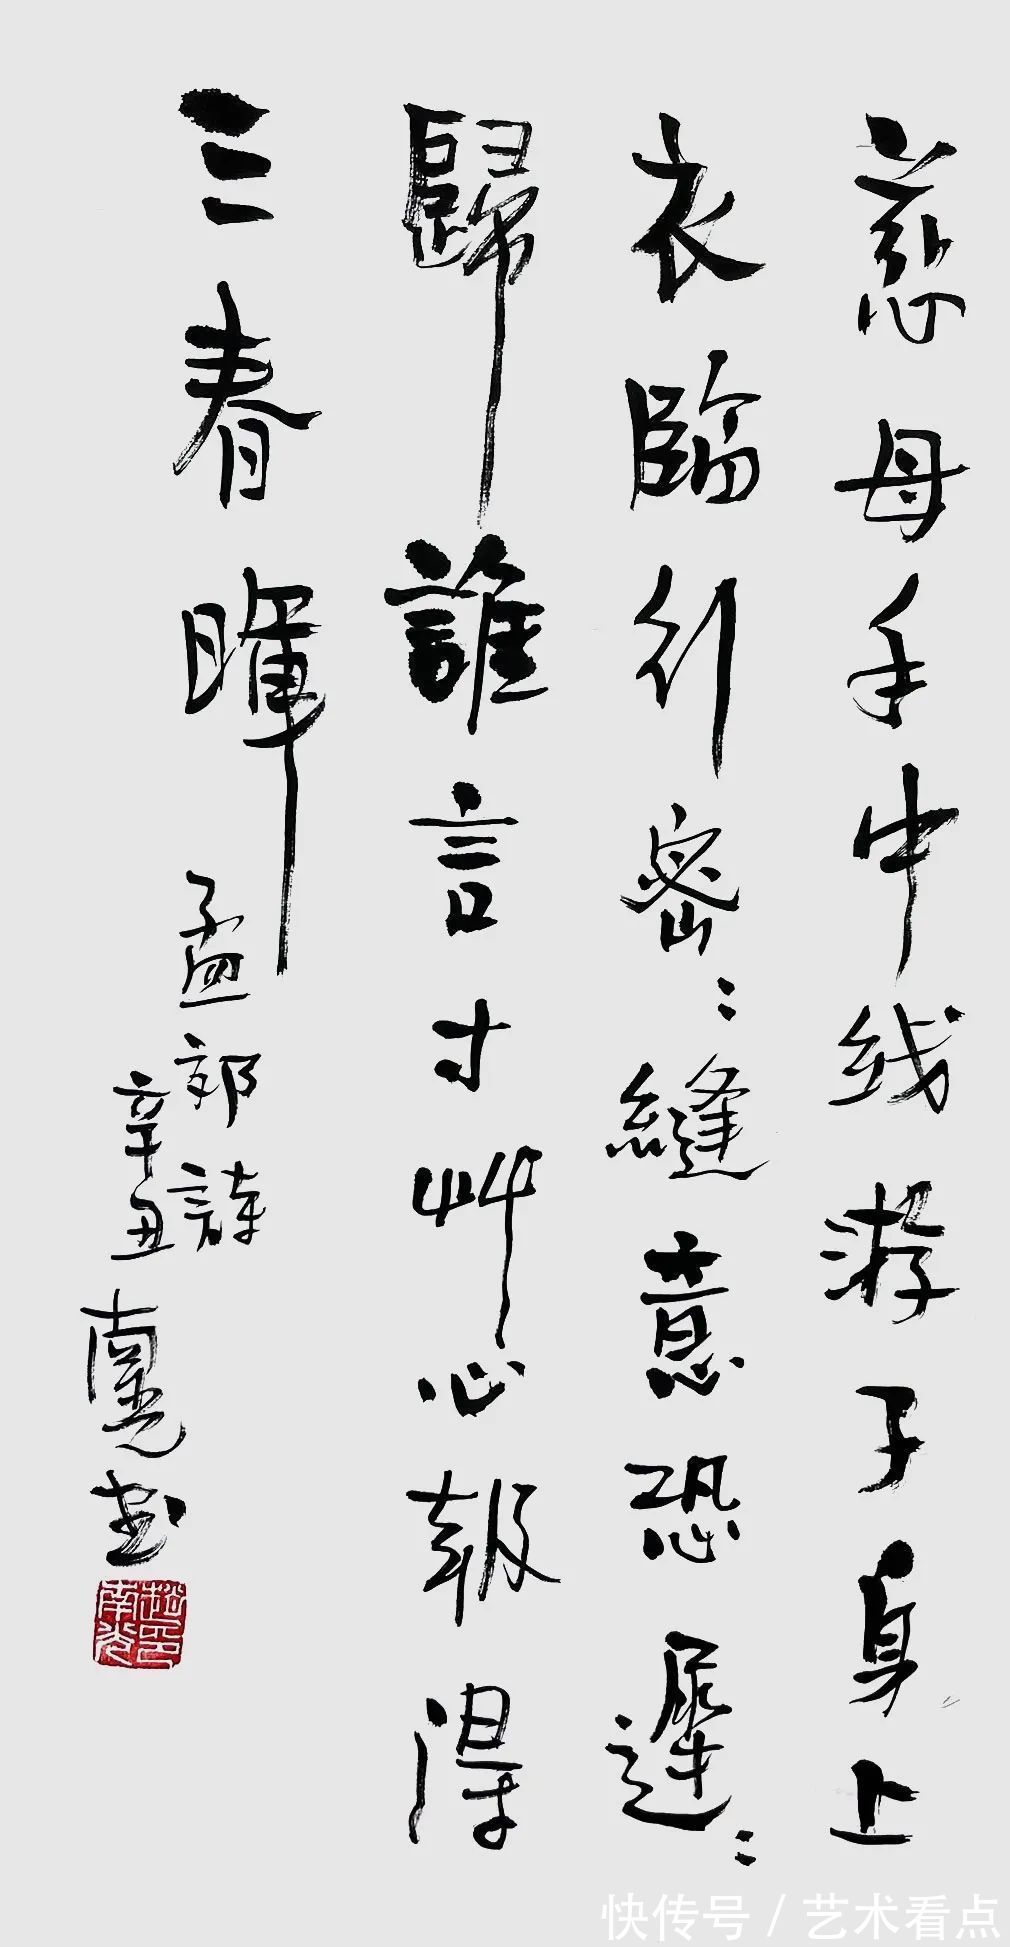 慈母手中线游子身上
衣臨行密:縫意恐遲:
歸誰言寸艸心報得
三春暉
孟郊詩
辛丑南书
快传号/艺术看点